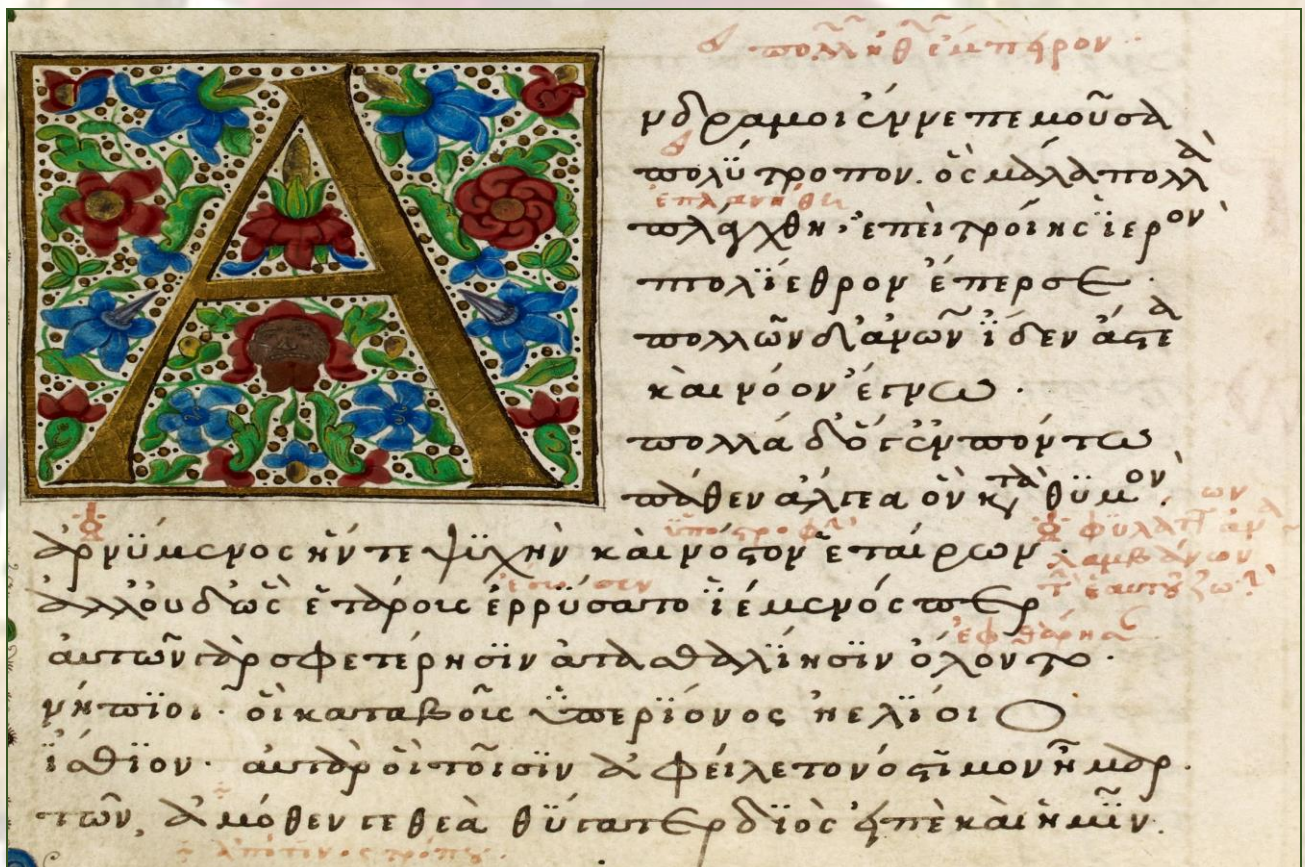 Ἀνδρα μοι ἔννεπε μοῦσα
πολύτροπον. ὃς μάλα πολλὰ
ἐπλανήθη
πλάγχθη· ἐπεὶ τροίης ἱερὸν
πτολίεθρον ἔπερσε·
πολλῶν δ' ἀνῶν ἴδεν ἄστεα
καὶ νόον ἔγνω·
πολλὰ δ' ὅγ' ἐν πόντω
πάθεν ἄλγεα ὃν κατὰ θϋμὸν·
ὑποστροφὴν
ἀρνϋμενος ἥν τε ψϋχὴν καὶ νόστον ἑταίρων·
ἔσωσεν
ἀλλ' οὐδ' ὣς ἑτάρους ἐρρϋσατο ϊέμενός περ
ἐφθάρησαν
αὐτῶν γὰρ σφετέρησϊν ἀτασθαλΐησϊν ὄλοντο·
νήπϊοι· οἳ κατα βοῦς ὑπερΐονος ἠελΐοιο
ἤσθϊον· αὐτὰρ ὁ τοῖσϊν ἀφείλετο νόστιμον ἦμαρ.
τῶν, ἁμόθεν γε θεὰ θϋγατερ δϊὸς εἰπὲ καὶ ἡμῖν.
ἀπό τινος τρόπου